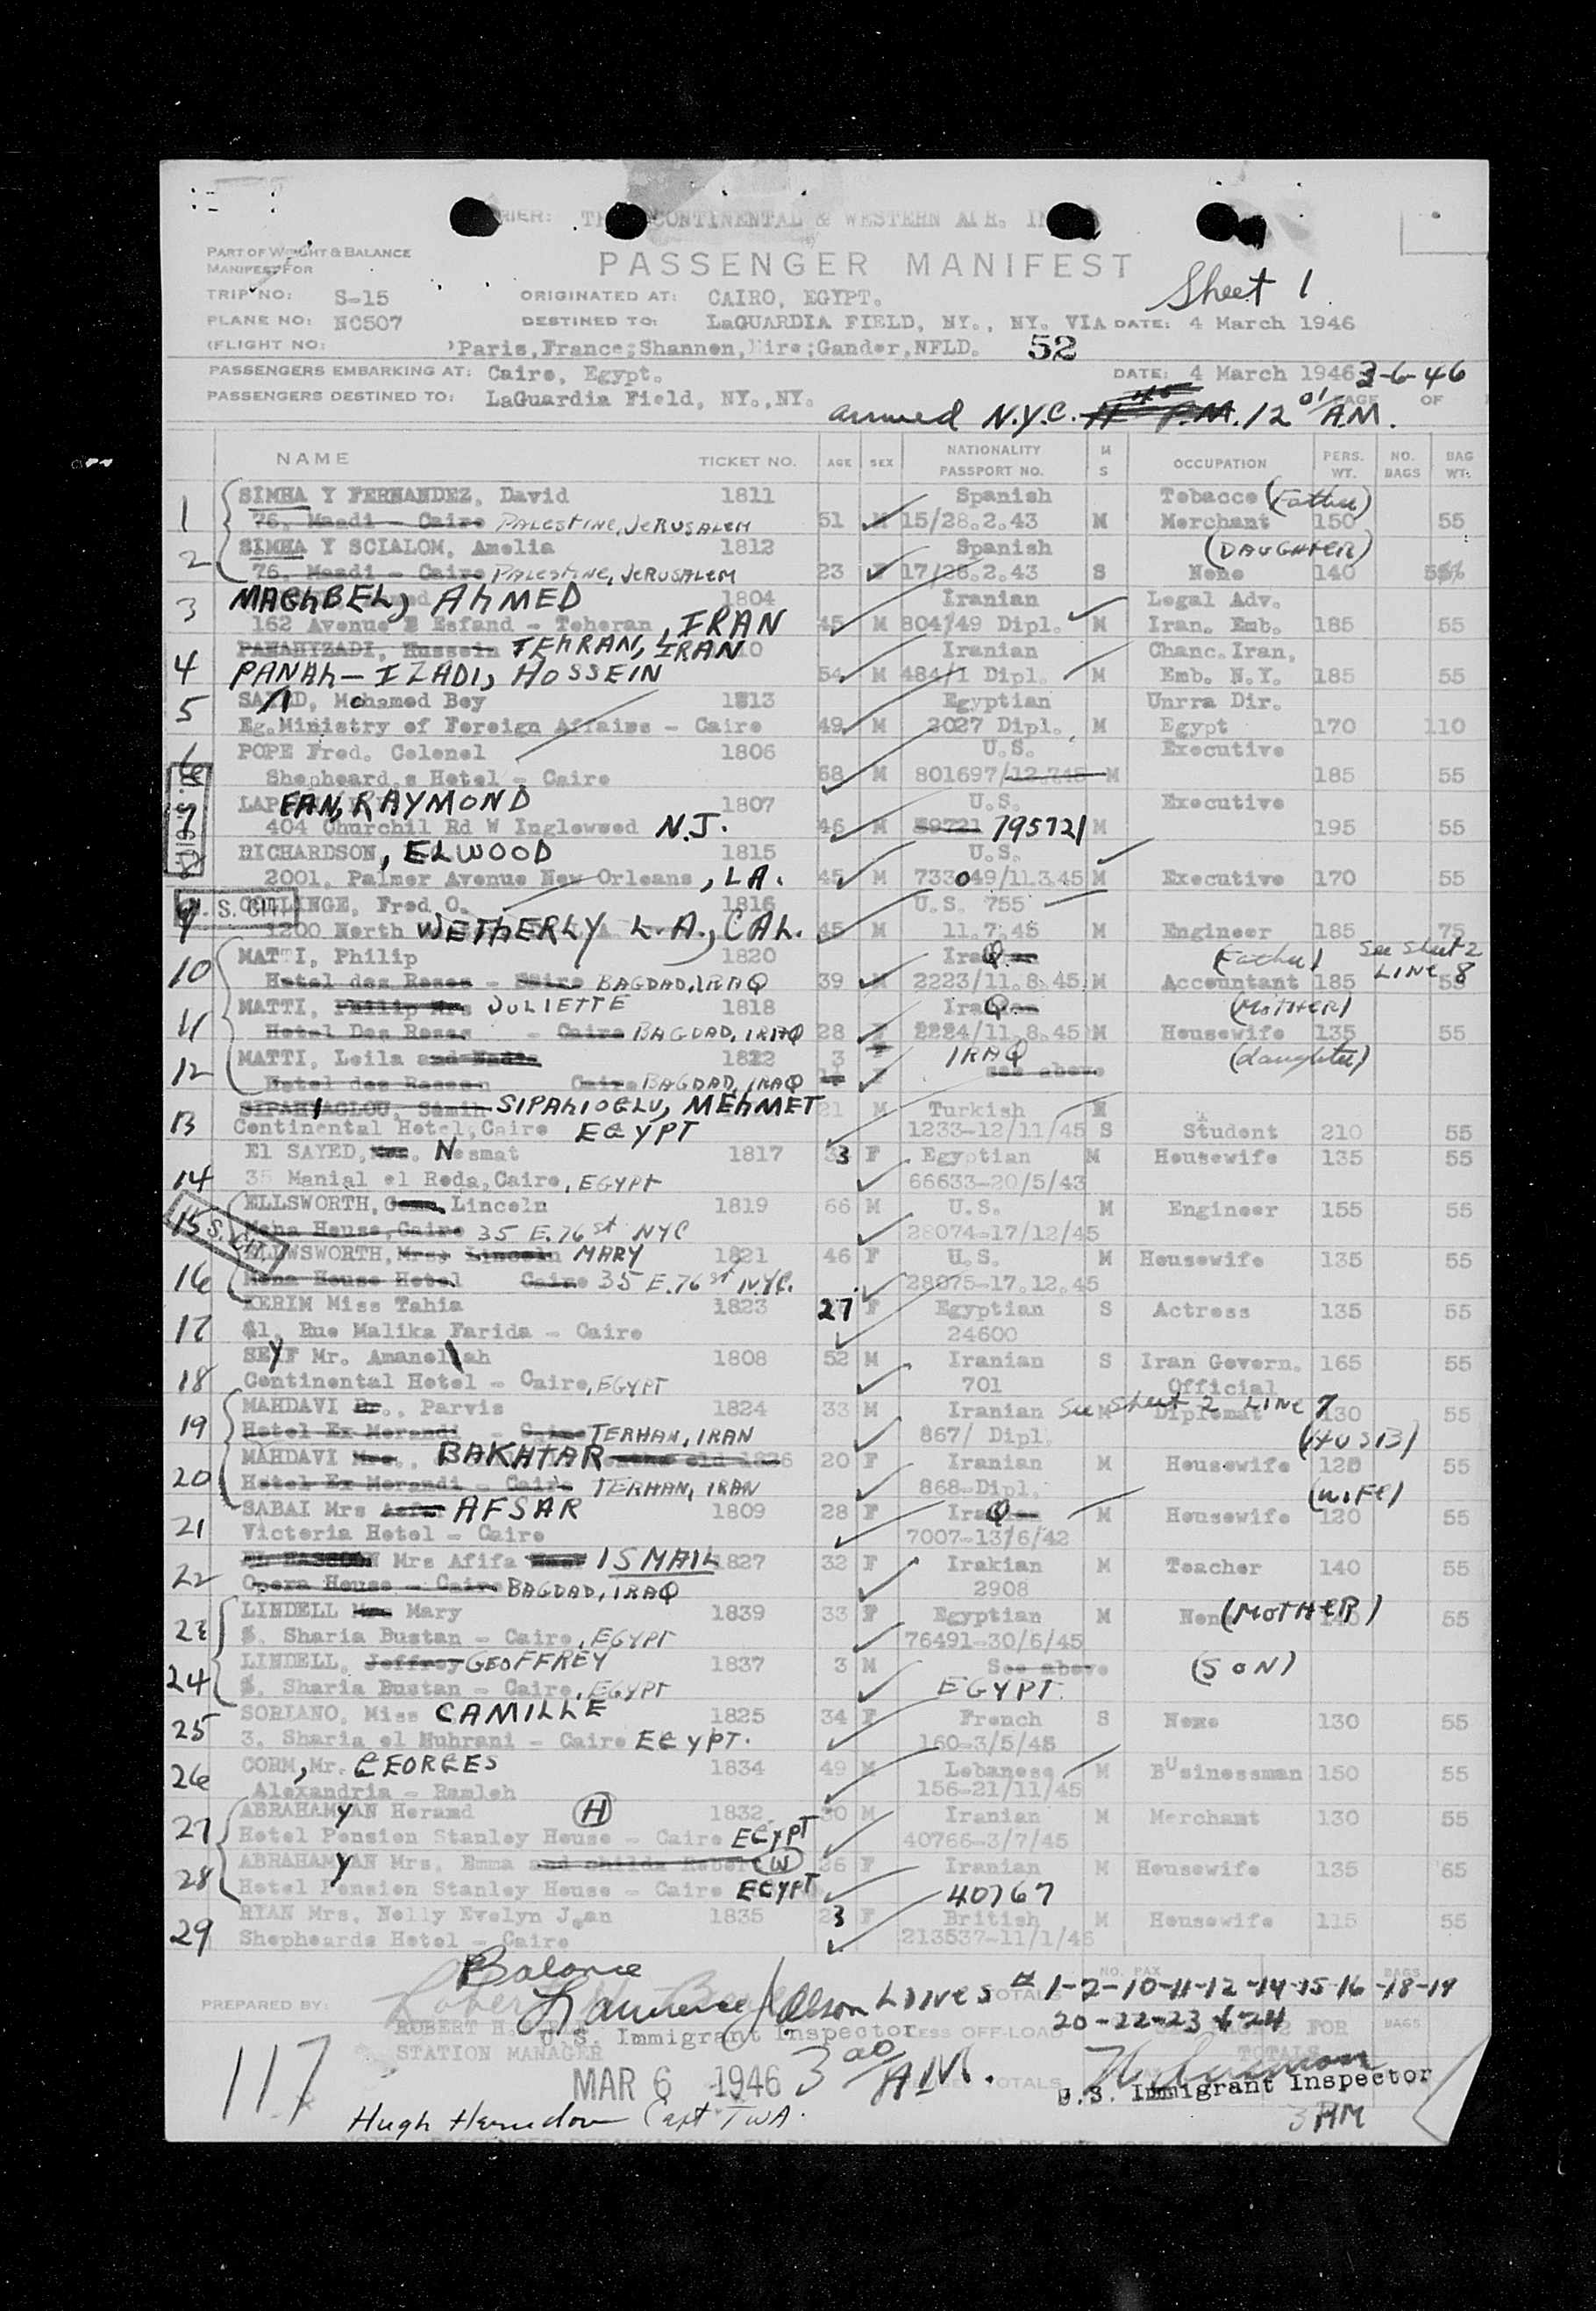 CONTINENTAL & WESTERN AIR. IN
PART OF WEIGHT & BALANCE
MANIFEST FOR
PASSENGER MANIFEST
Sheet 1
TRIP NO: S-15 ORIGINATED AT: CAIRO, EGYPT.
PLANE NO: NC507 DESTINED TO: LaGUARDIA FIELD, NY., NY. VIA DATE: 4 March 1946
FLIGHT NO: Paris,France;Shannon,Eire;Gander,NFLD. 52
PASSENGERS EMBARKING AT: Cairo, Egypt. DATE: 4 March 1946 3-6-46
PASSENGERS DESTINED TO: LaGuardia Field, NY.,NY. PAGE OF
arrived N.Y.C. 12 01 AM.
NAME TICKET NO. AGE SEX NATIONALITY PASSPORT NO. M S OCCUPATION PERS. WT. NO. BAGS BAG WT.
1 SIMHA Y FERNANDEZ, David 1811 Spanish Tobacco (Father)
76, Maadi - Cairo PALESTINE, JERUSALEM 51 M 15/28.2.43 M Merchant 150 55
2 SIMHA Y SCIALOM, Amelia 1812 Spanish (DAUGHTER)
76, Maadi - Cairo PALESTINE, JERUSALEM 23 F 17/28.2.43 S None 140 55
3 MAGHBEL, AHMED 1804 Iranian Legal Adv.
162 Avenue E Esfand - Teheran, IRAN 45 M 804/49 Dipl. M Iran. Emb. 185 55
PANAHIZADI, Hussein TEHRAN, IRAN Iranian Chanc.Iran,
4 PANAH-IZADI, HOSSEIN 54 M 484/1 Dipl. M Emb. N.Y. 185 55
5 Mohamed Bey 1813 Egyptian Unrra Dir.
Eg.Ministry of Foreign Affairs - Cairo 49 M 2027 Dipl. M Egypt 170 110
6 POPE Fred. Colonel 1806 U.S. Executive
Shepheard,s Hotel - Cairo 58 M 801697/12.745 M 185 55
7 LAP EAN, RAYMOND 1807 U.S. Executive
404 Churchil Rd W Inglewood N.J. 46 M 59721 795721 M 195 55
8 RICHARDSON, ELWOOD 1815 U.S.
2001, Palmer Avenue New Orleans, LA. 45 M 733049/11.3.45 M Executive 170 55
9 U.S. CIT. Fred O. 1816 U.S. 755
1200 North WETHERLY L.A., CAL. 45 M 11.7.45 M Engineer 185 75
10 MATTI, Philip 1820 IraQ (Father) See Sheet 2 LINE 8
Hotel des Roses - Cairo BAGDAD, IRAQ 39 M 2223/11.8.45 M Accountant 185 55
11 MATTI, Philip Mrs JULIETTE 1818 IraQ (MOTHER)
Hotel Des Roses - Cairo BAGDAD, IRAQ 28 F 2224/11.8.45 M Housewife 135 55
12 MATTI, Leila and Nadia 1822 3 F IRAQ (daughter)
Hotel des Rosesn Cairo BAGDAD, IRAQ F see above
13 SIPAHIOGLU, MEHMET 21 M Turkish
Continental Hotel,Cairo EGYPT 1233-12/11/45 S Student 210 55
El SAYED, Nesmat 1817 33 F Egyptian M Housewife 135 55
14 35 Manial el Roda,Cairo, EGYPT 66633-20/5/43
15 ELLSWORTH, Lincoln 1819 66 M U.S. M Engineer 155 55
Mena House,Cairo 35 E. 76 st NYC 28074-17/12/45
ELLWSWORTH, Mrs. Lincoln MARY 1821 46 F U.S. M Housewife 135 55
16 Mena House Hotel Cairo 35 E. 76 st N.Y.C. 28075-17.12.45
KERIM Miss Tahia 1823 27 F Egyptian S Actress 135 55
17 41, Rue Malika Farida - Cairo 24600
SEYF Mr. Amanollah 1808 52 M Iranian S Iran Govern. 165 55
18 Continental Hotel - Cairo, EGYPT 701 Official
19 MAHDAVI Dr., Parvis 1824 33 M Iranian See Sheet 2 LINE 7 M Diplomat 130 55
Hotel Ex Morandi - Cairo TERHAN, IRAN 867/ Dipl. (HUSB)
20 MAHDAVI Mrs., BAKHTAR 20 F Iranian M Housewife 120 55
Hotel Ex Morandi - Cairo TERHAN, IRAN 868-Dipl. (WIFE)
21 SABAI Mrs AFSAR 1809 28 F IraQ M Housewife 120 55
Victoria Hotel - Cairo 7007-13/6/42
22 Mrs Afifa ISMAIL 1827 32 F Irakian M Teacher 140 55
Opera House - Cairo BAGDAD, IRAQ 2908
23 LINDELL Mrs Mary 1839 33 F Egyptian M None (MOTHER) 55
Sharia Bustan - Cairo, EGYPT 76491-30/6/45
24 LINDELL, Jeffrey GEOFFREY 1837 3 M See above (SON)
Sharia Bustan - Cairo, EGYPT EGYPT.
25 SORIANO, Miss CAMILLE 1825 34 F French S None 130 55
3, Sharia el Nuhrani - Cairo EGYPT. 160-3/5/45
26 CORM, Mr. GEORGES 1834 49 M Lebanese M Businessman 150 55
Alexandria - Ramleh 156-21/11/45
27 ABRAHAMYAN Heramd H 1832 30 M Iranian M Merchant 130 55
Hotel Pension Stanley House - Cairo EGYPT 40766-3/7/45
28 ABRAHAMYAN Mrs. Emma W 26 F Iranian M Housewife 135 65
Hotel Pension Stanley House - Cairo EGYPT 40767
RYAN Mrs. Nelly Evelyn Jean 1835 23 F British M Housewife 115 55
29 Shepheards Hotel - Cairo 213537-11/1/46
Balance
NO. PAX BAGS
PREPARED BY: Lines # 1-2-10-11-12-14-15-16-18-19
TOTALS
20-22-23 & 24
ROBERT H.
U.S. Immigrant Inspector LESS OFF-LOAD FOR BAGS
STATION MANAGER TOTALS
117 MAR 6 1946 3 00 AM. TOTALS
U.S. Immigrant Inspector
Hugh Herndon Capt TWA. 3 AM